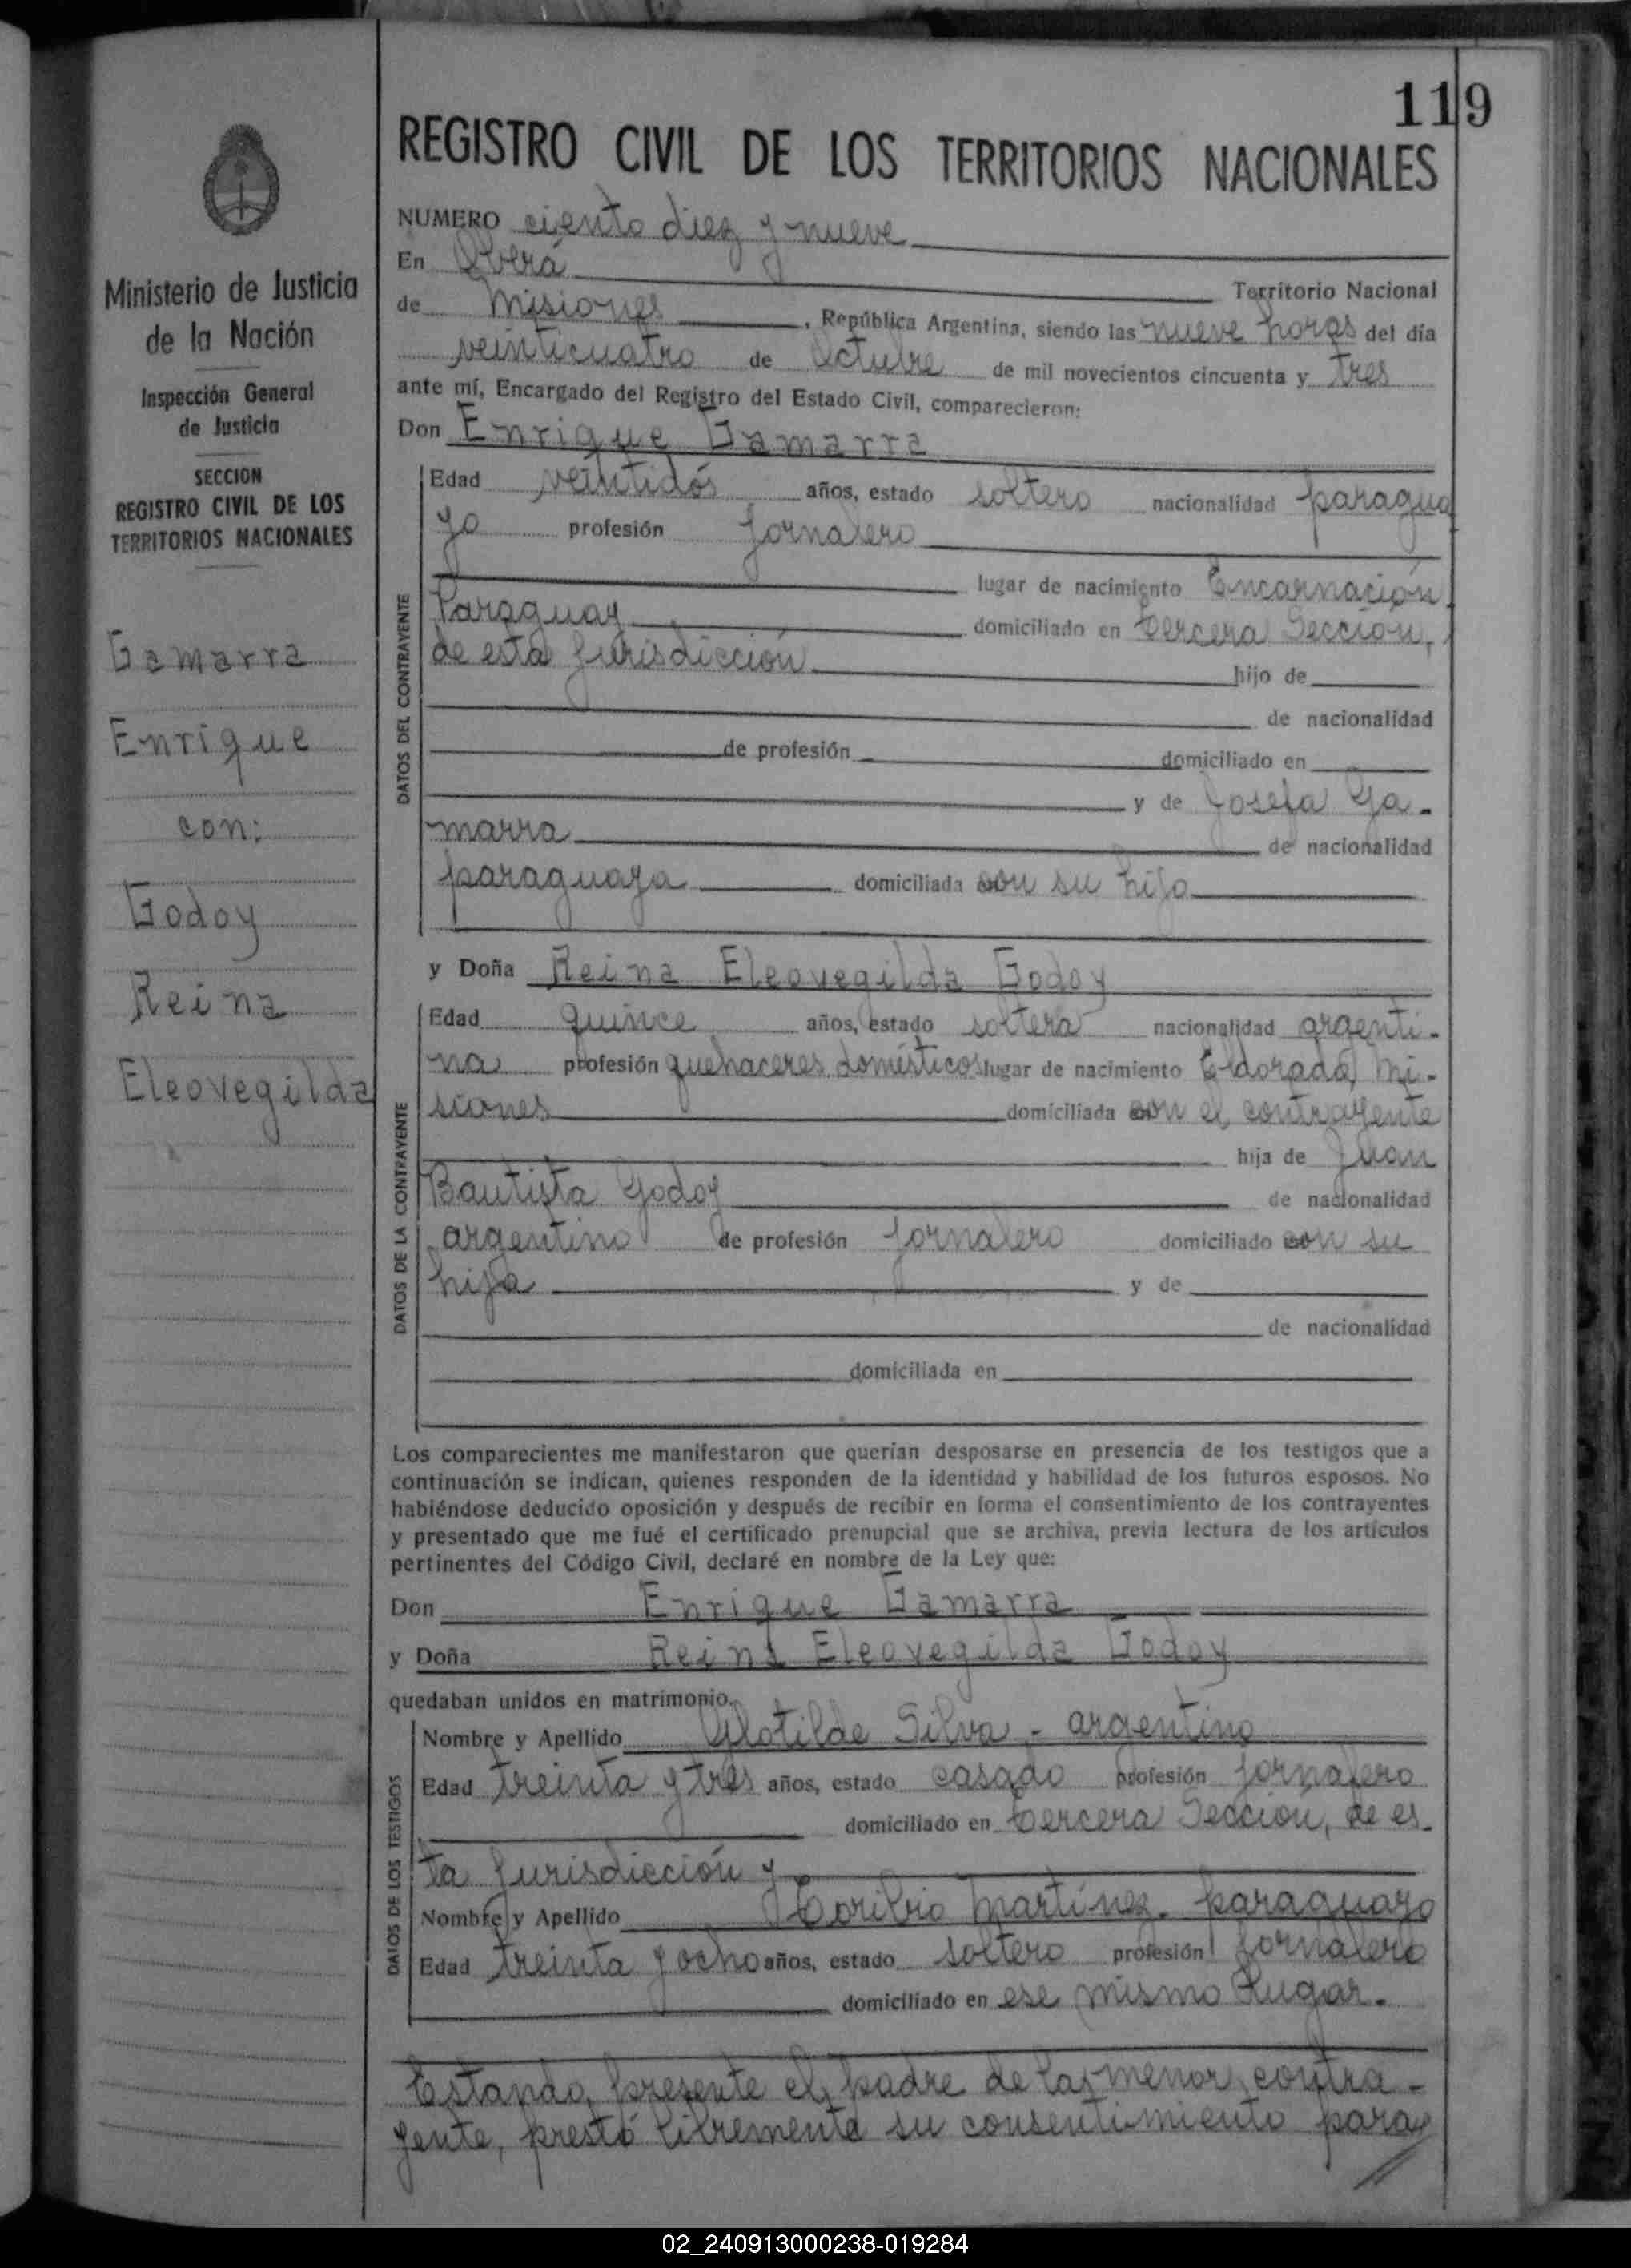 119
REGISTRO CIVIL DE LOS TERRITORIOS NACIONALES
Ministerio de Justicia
de la Nación
Inspección General
de Justicia
SECCION
REGISTRO CIVIL DE LOS
TERRITORIOS NACIONALES
Gamarra
Enrique
con:
Godoy
Reina
Eleovegilda
NUMERO ciento diez y nueve
En Oberá Territorio Nacional
de Misiones, República Argentina, siendo las nueve horas del día
veinticuatro de Octubre de mil novecientos cincuenta y tres
ante mí, Encargado del Registro del Estado Civil, comparecieron:
Don Enrique Gamarra
DATOS DEL CONTRAYENTE
Edad veintidós años, estado soltero nacionalidad paragua
yo profesión jornalero
lugar de nacimiento Encarnación,
Paraguay domiciliado en tercera Sección,
de esta jurisdicción hijo de
de nacionalidad
de profesión domiciliado en
y de Josefa Ga-
marra de nacionalidad
paraguaya domiciliada con su hijo
y Doña Reina Eleovegilda Godoy
DATOS DE LA CONTRAYENTE
Edad quince años, estado soltera nacionalidad argenti-
na profesión quehaceres domésticos lugar de nacimiento Eldorado, Mi-
siones domiciliada con el contrayente
hija de Juan
Bautista Godoy de nacionalidad
argentino de profesión jornalero domiciliado con su
hija y de
de nacionalidad
domiciliada en
Los comparecientes me manifestaron que querían desposarse en presencia de los testigos que a
continuación se indican, quienes responden de la identidad y habilidad de los futuros esposos. No
habiéndose deducido oposición y después de recibir en forma el consentimiento de los contrayentes
y presentado que me fué el certificado prenupcial que se archiva, previa lectura de los artículos
pertinentes del Código Civil, declaré en nombre de la Ley que:
Don Enrique Gamarra
y Doña Reina Eleovegilda Godoy
quedaban unidos en matrimonio.
DATOS DE LOS TESTIGOS
Nombre y Apellido Clotilde Silva - argentino
Edad treinta y tres años, estado casado profesión jornalero
domiciliado en tercera Sección, de es-
ta jurisdicción y
Nombre y Apellido Toribio Martínez. paraguayo
Edad treinta y ocho años, estado soltero profesión jornalero
domiciliado en ese mismo lugar.
Estando presente el padre de la menor contra-
yente, prestó libremente su consentimiento para
02_240913000238-019284